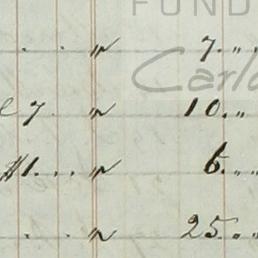 FUND
Carlo
. . „ 7. „
e 7 „ 10. „
$1... „ 6. „
. . „ 25. „